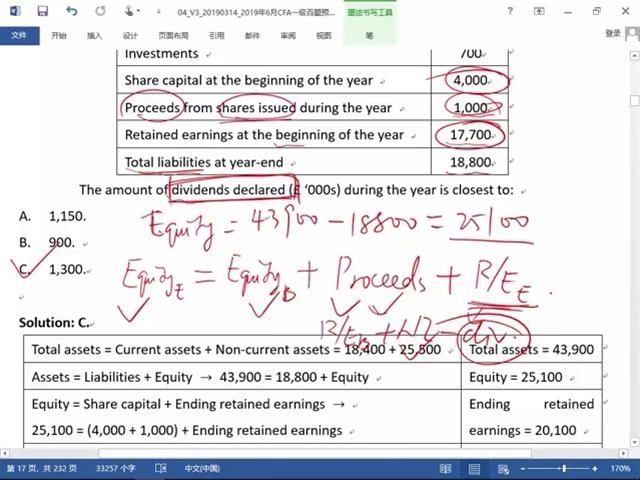 04_V3_20190314_2019年6月CFA一级百题预...
墨迹书写工具
文件 开始 插入 设计 页面布局 引用 邮件 审阅 视图 笔
登录
Investments 700
Share capital at the beginning of the year 4,000
Proceeds from shares issued during the year 1,000
Retained earnings at the beginning of the year 17,700
Total liabilities at year-end 18,800
The amount of dividends declared (£ '000s) during the year is closest to:
A. 1,150.
Equity = 43900 - 18800 = 25100
B. 900.
C. 1,300.
Equity E = Equity B + Proceeds + R/E E .
Solution: C.
R/E B + NI - div.
Total assets = Current assets + Non-current assets = 18,400 + 25,500 Total assets = 43,900
Assets = Liabilities + Equity → 43,900 = 18,800 + Equity Equity = 25,100
Equity = Share capital + Ending retained earnings → Ending retained
25,100 = (4,000 + 1,000) + Ending retained earnings earnings = 20,100
第 17 页，共 232 页 33257 个字 中文(中国) 170%